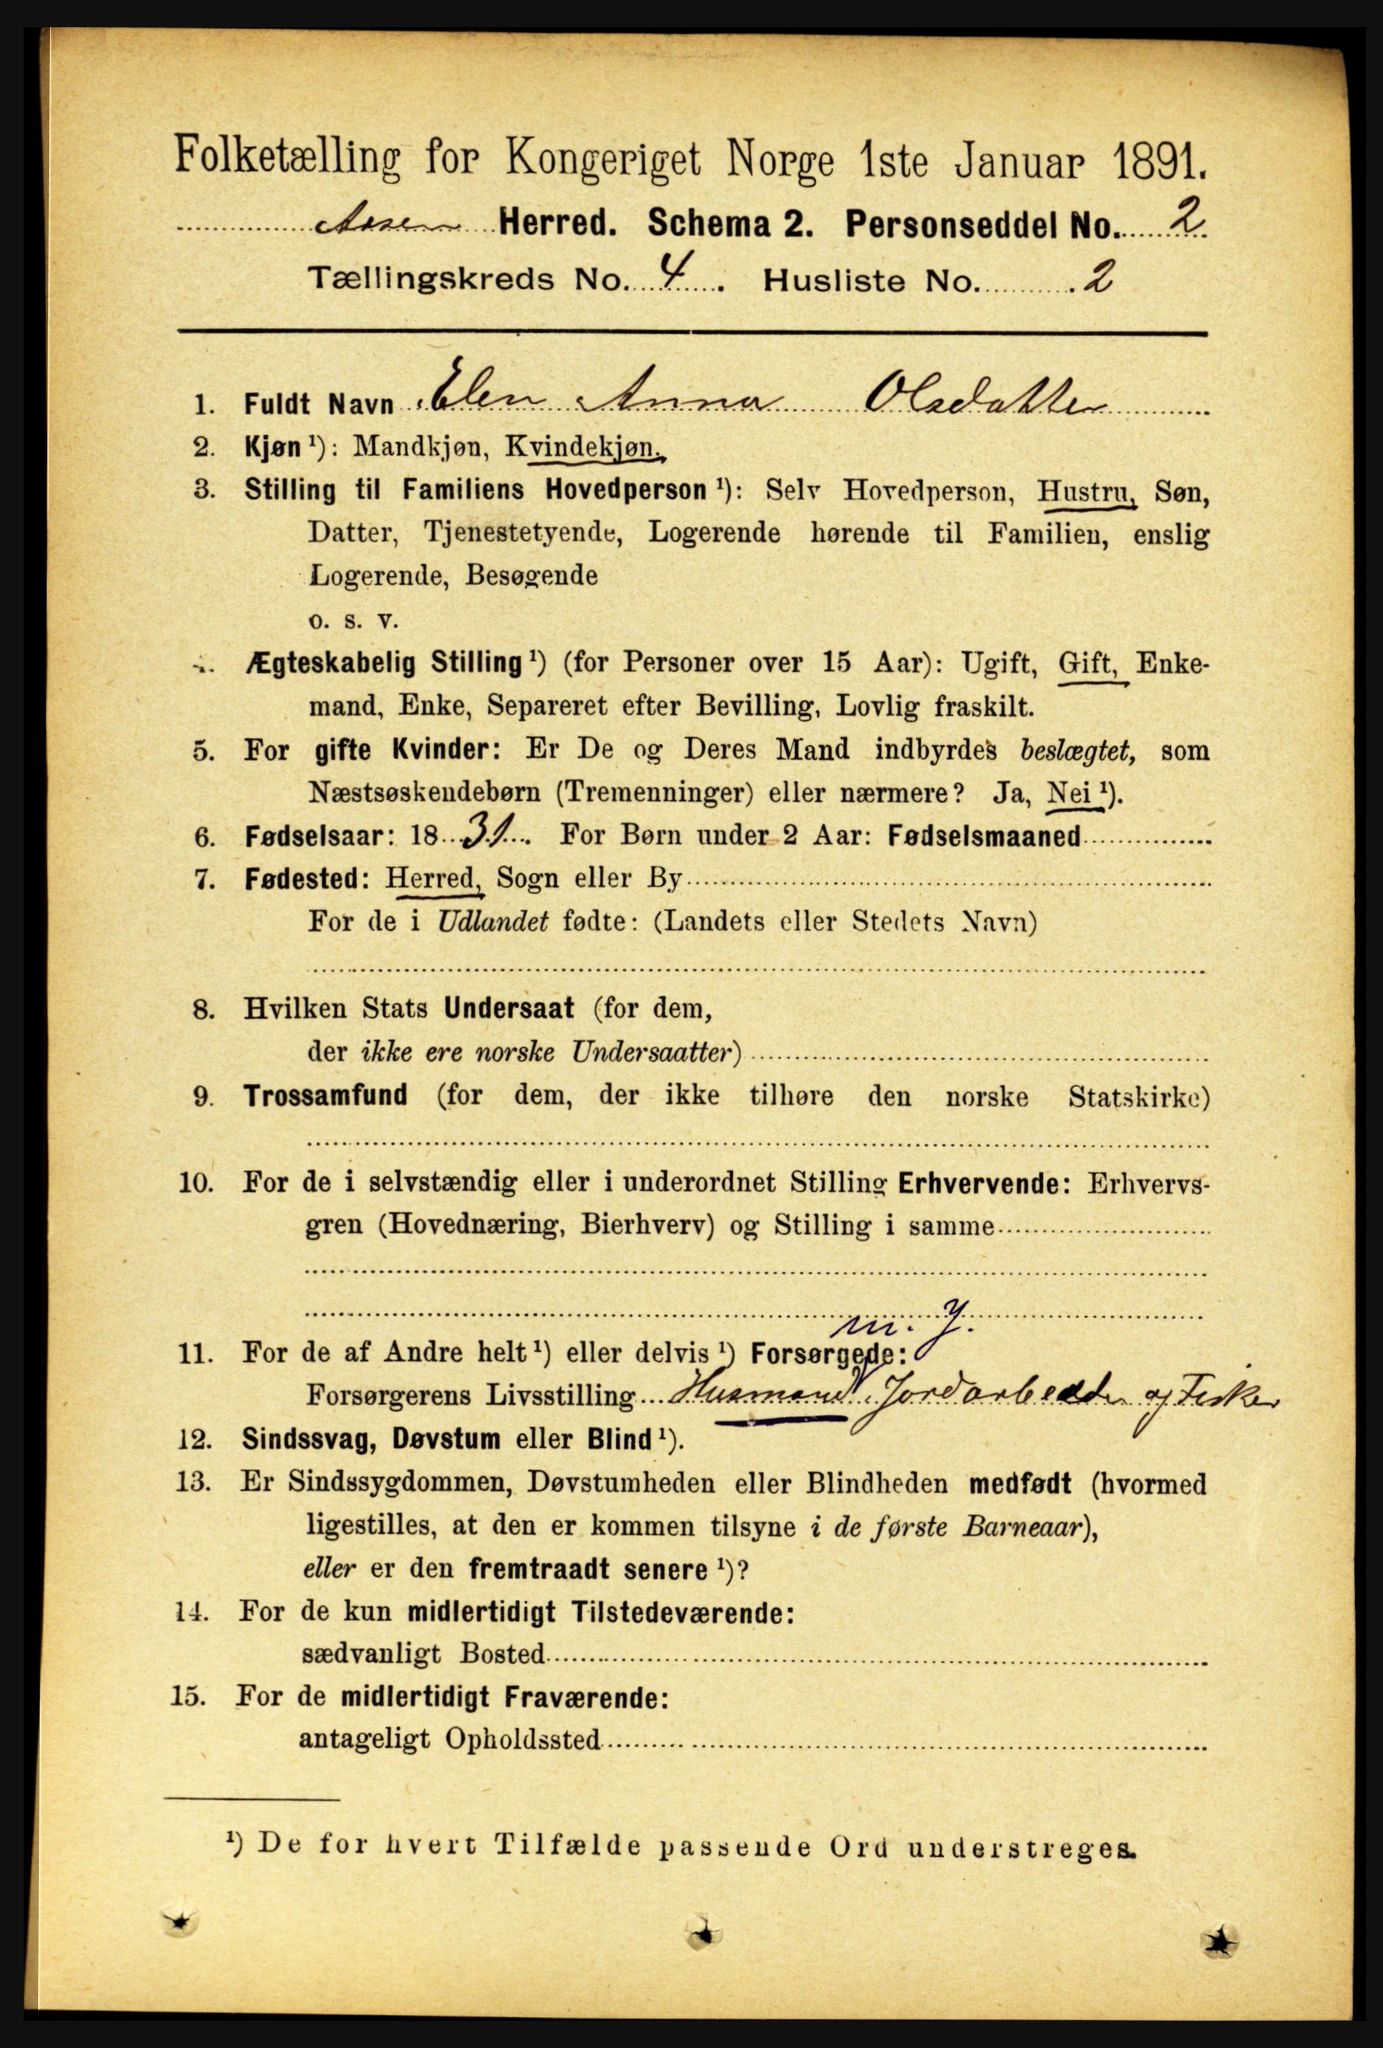 Folketælling for Kongeriget Norge 1ste Januar 1891.
Aasen Herred. Schema 2. Personseddel No. 2.
Tællingskreds No. 4. Husliste No. 2
1. Fuldt Navn Elen Anna Olsdatter
2. Kjøn¹): Mandkjøn, Kvindekjøn.
3. Stilling til Familiens Hovedperson¹): Selv Hovedperson, Hustru, Søn,
Datter, Tjenestetyende, Logerende hørende til Familien, enslig
Logerende, Besøgende
o. s. v.
Ægteskabelig Stilling¹) (for Personer over 15 Aar): Ugift, Gift, Enke-
mand, Enke, Separeret efter Bevilling, Lovlig fraskilt.
5. For gifte Kvinder: Er De og Deres Mand indbyrdes beslægtet, som
Næstsøskendebørn (Tremenninger) eller nærmere? Ja, Nei¹).
6. Fødselsaar: 1831. For Børn under 2 Aar: Fødselsmaaned
7. Fødested: Herred, Sogn eller By
For de i Udlandet fødte: (Landets eller Stedets Navn)
8. Hvilken Stats Undersaat (for dem,
der ikke ere norske Undersaatter)
9. Trossamfund (for dem, der ikke tilhøre den norske Statskirke)
10. For de i selvstændig eller i underordnet Stilling Erhvervende: Erhvervs-
gren (Hovednæring, Bierhverv) og Stilling i samme
m. J.
11. For de af Andre helt¹) eller delvis¹) Forsørgede:
Forsørgerens Livsstilling Husmand Jordarbeider og Fisker
12. Sindssvag, Døvstum eller Blind¹).
13. Er Sindssygdommen, Døvstumheden eller Blindheden medfødt (hvormed
ligestilles, at den er kommen tilsyne i de første Barneaar),
eller er den fremtraadt senere¹)?
14. For de kun midlertidigt Tilstedeværende:
sædvanligt Bosted
15. For de midlertidigt Fraværende:
antageligt Opholdssted
¹) De for hvert Tilfælde passende Ord understreges.